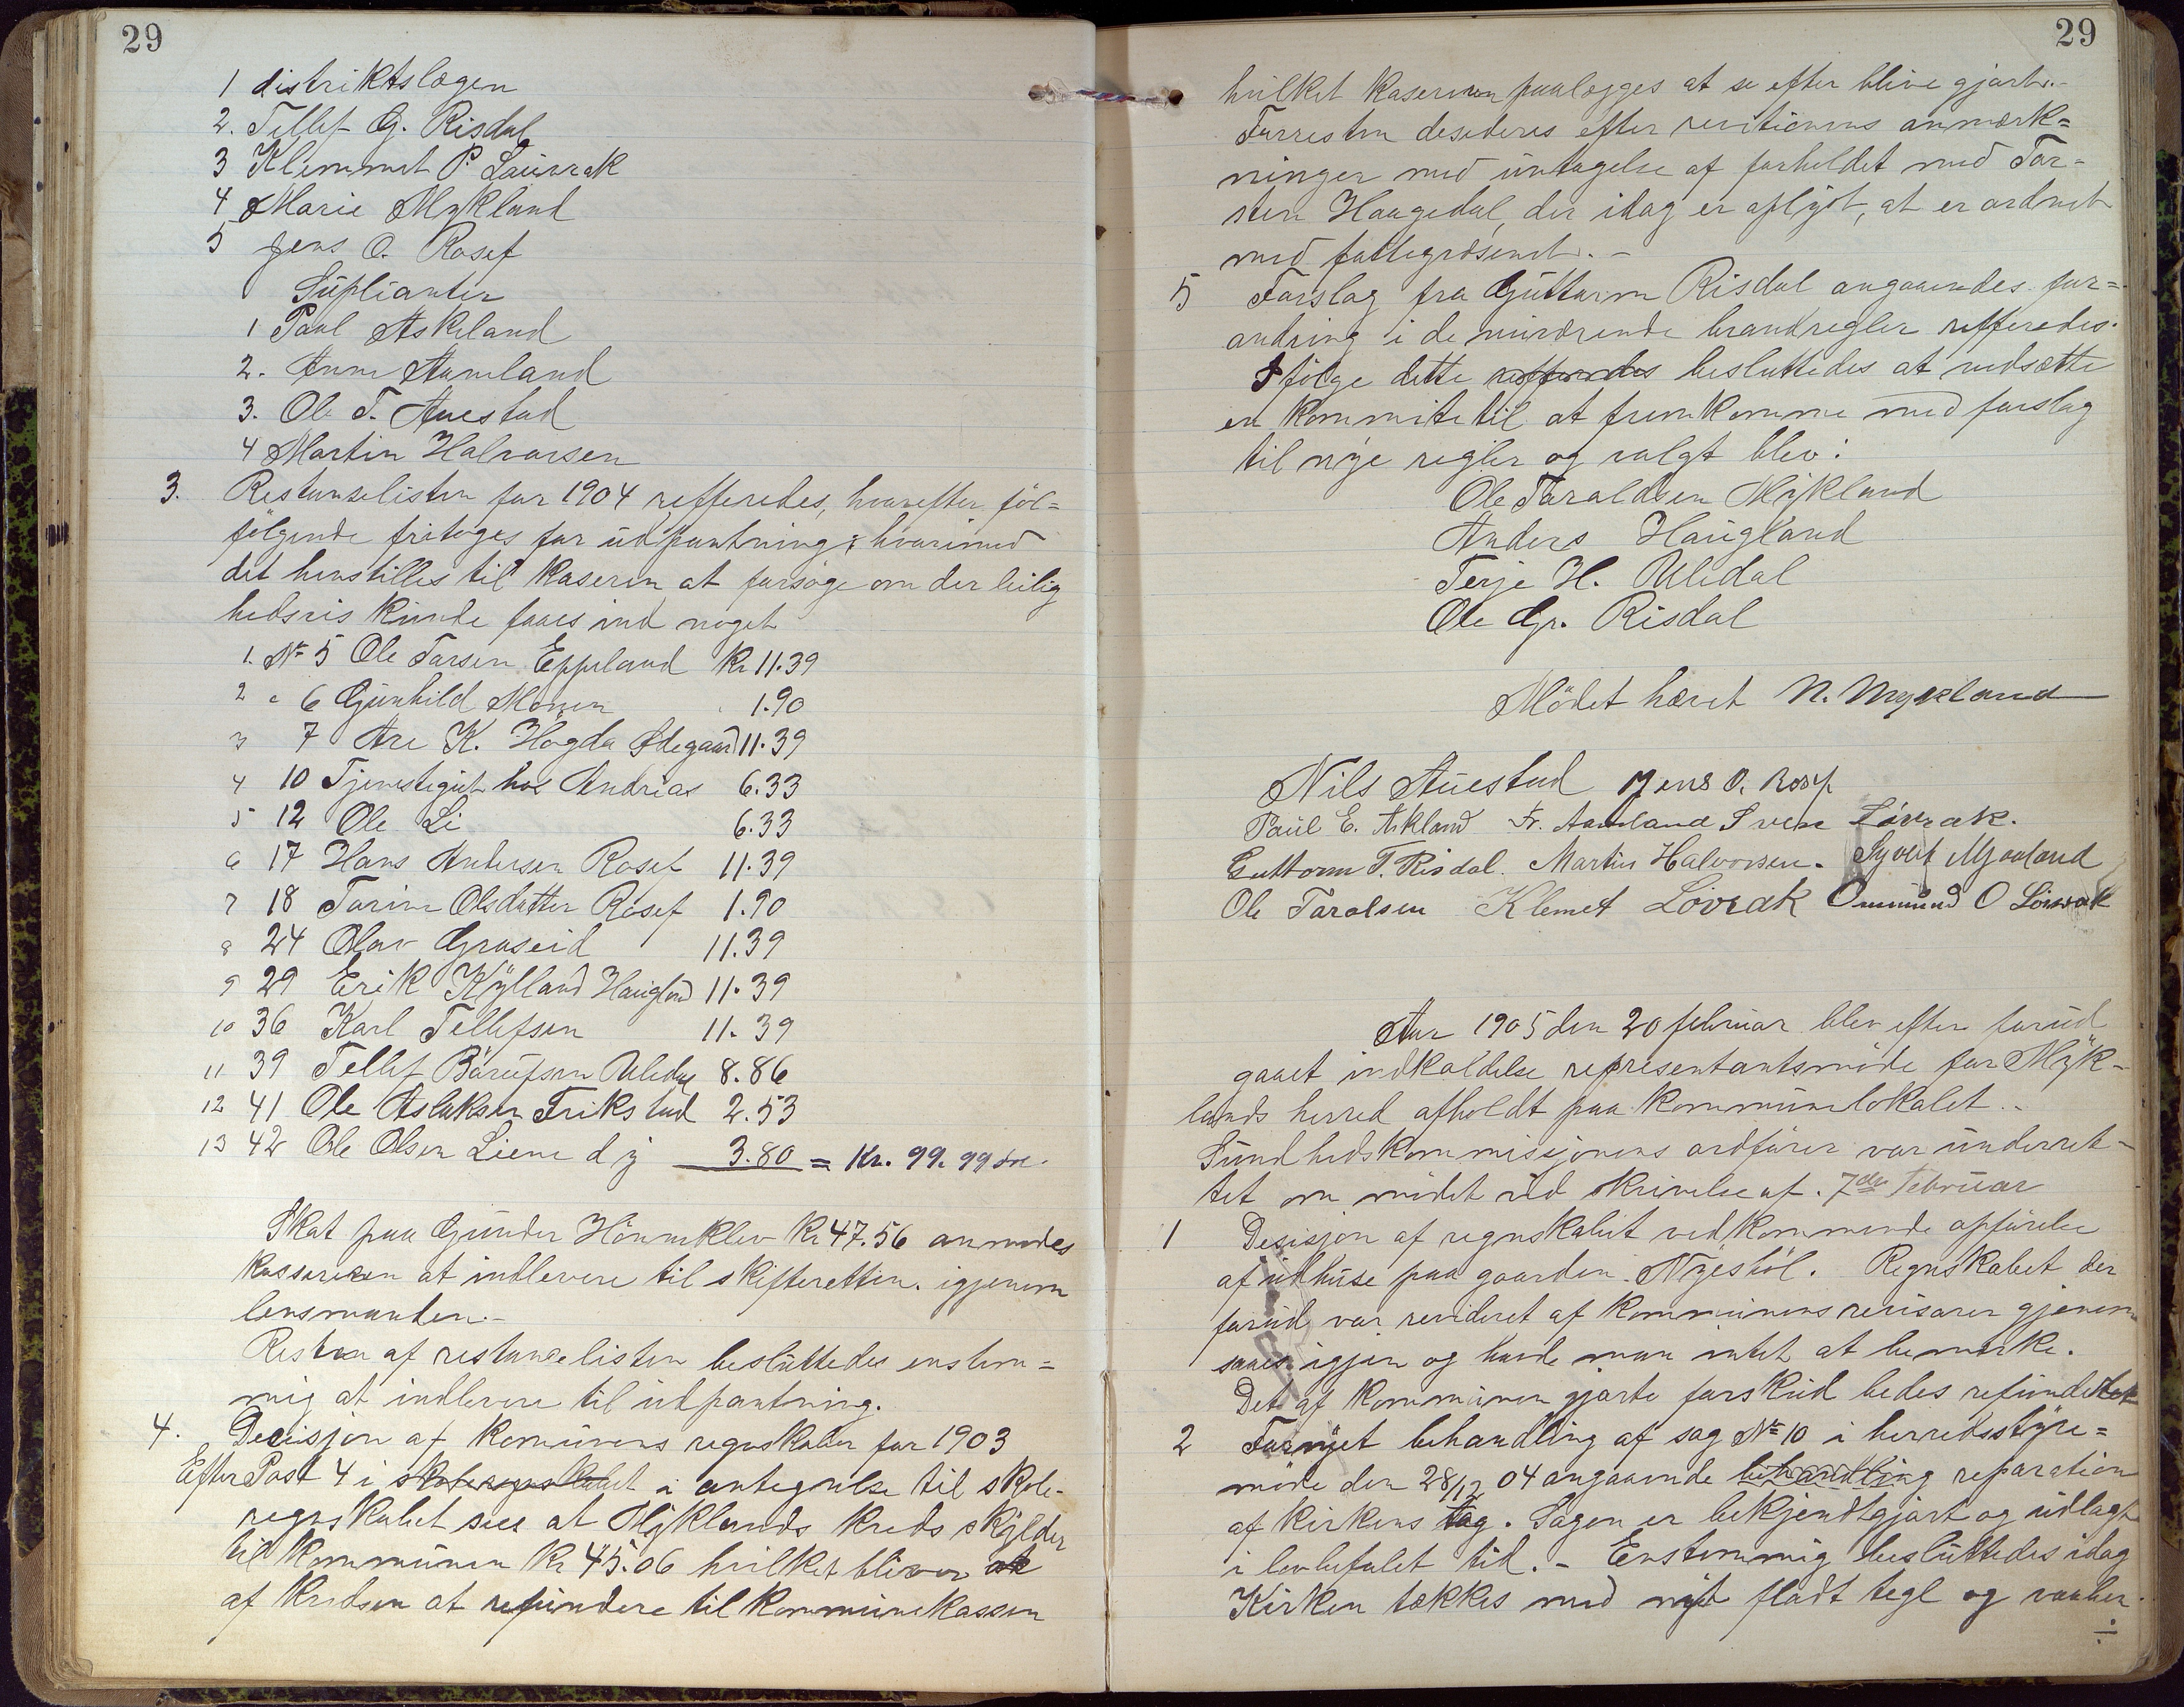 29
1 distriktslægen
2. Tellef G. Risdal
3 Klemmet P. Lauvrak
4 Marie Mykland
5 Jens O. Rosef
Süplianter
1 Paul Askeland
2. Anne Aamland
3. Ole T. Auestad
4 Martin Halvarsen
3. Restanselisten for 1904 refferedes, hvorefter föl=
følgende fritoges for üdpantning; hvorimod
det henstilles til kaseren at forsøge om der leilig
hedsvis kunde faaes ind noget
1. No 5 Ole Tarsen Eppeland Kr 11.39
2 " 6 Günhild Monen 1.90
3 7 Are K. Högda Ødegaard 11.39
4 10 Tjenstegüt hos Andrias 6.33
5 12 Ole Li 6.33
6 17 Hans Andersen Rosef 11.39
7 18 Tarine Olsdatter Rosef 1.90
8 24 Olav Graseid 11.39
9 29 Erik Kylland Haugland 11.39
10 36 Karl Tellefsen 11.39
11 39 Tellef Bärüfsen Uledal 8.86
12 41 Ole Aslaksen Frikstad 2.53
13 42 Ole Olsen Liene d y 3.80 = Kr. 99.99 øre.
Skat paa Gunder Hönneklev Kr 47.56 anmodes
kassereren at indlevere til skifteretten. igjenem
lensmanden.-
Resten af restanselisten besluttedes enstem=
mig at indlevere til üdpantning.
4. Decisjon af komünens regnskaber for 1903
Efter Post 4 i skoleregnskabet i antegnelse til skole-
regnskabet sees at Myklands kreds skylder
til kommünen Kr 45.06 hvilket bliver at
af kredsen at refundere til kommünekassen
29
hvilket kasereren paalægges at se efter blive gjort.-
Forresten desideres efter revitionens anmærk=
ninger med üntagelse af forholdet med Tor=
sten Haugedal, der idag er oplyst, at er ordnet
med fattegvæsenet.-
5 Forslag fra Güttorm Risdal angaaendes for=
andring i de nüværende brandregler refferedes.
Ifölge dette refferedes besluttedes at nedsætte
en kommite til at fremkomme med forslag
til nye regler og valgt blev:
Ole Taraldsen Mykland
Anders Haugland
Terje H. Uledal
Ole Gr. Risdal
Mödet hævet N. Mykland
Nils Aüestad Jens O. Rosef
Paul E. Askland Fr. Aamland Sven Løvrak.
Guttorm T. Risdal. Martin Halvorsen. Syvert Mjaaland
Ole Taralsen Klemet Lovrak Ommünd O Lövrak
Aar 1905 den 20 februar blev efter forüd
gaaet indkaldelse representantsmøde for Myk-
lands herred afholdt paa kommünelokalet.-
Sündhedskommisjonens ordfører var ünderret-
tet om mödet ved skrivelse af. 7de Februar
1 Desisjon af regnskabet vedkommende opførelse
af üdhüse paa gaarden Nyestöl. Regnskabet der
forüd var revideret af kommünens revisorer gjenem
saaes igjen og havde man intet at bemærke.
Det af kommünen gjorte forsküd bedes refunderet
2 Fornyet behandling af sag No 10 i herredsstyre=
möde den 28/12 04 angaaende behandling reparation
af kirkens tag. Sagen er bekjendtgjort og üdlagt
i lovbefalet tid.- Enstemmig beslüttedes idag
Kirken tækkes med nyt fladt tegl og vaaben